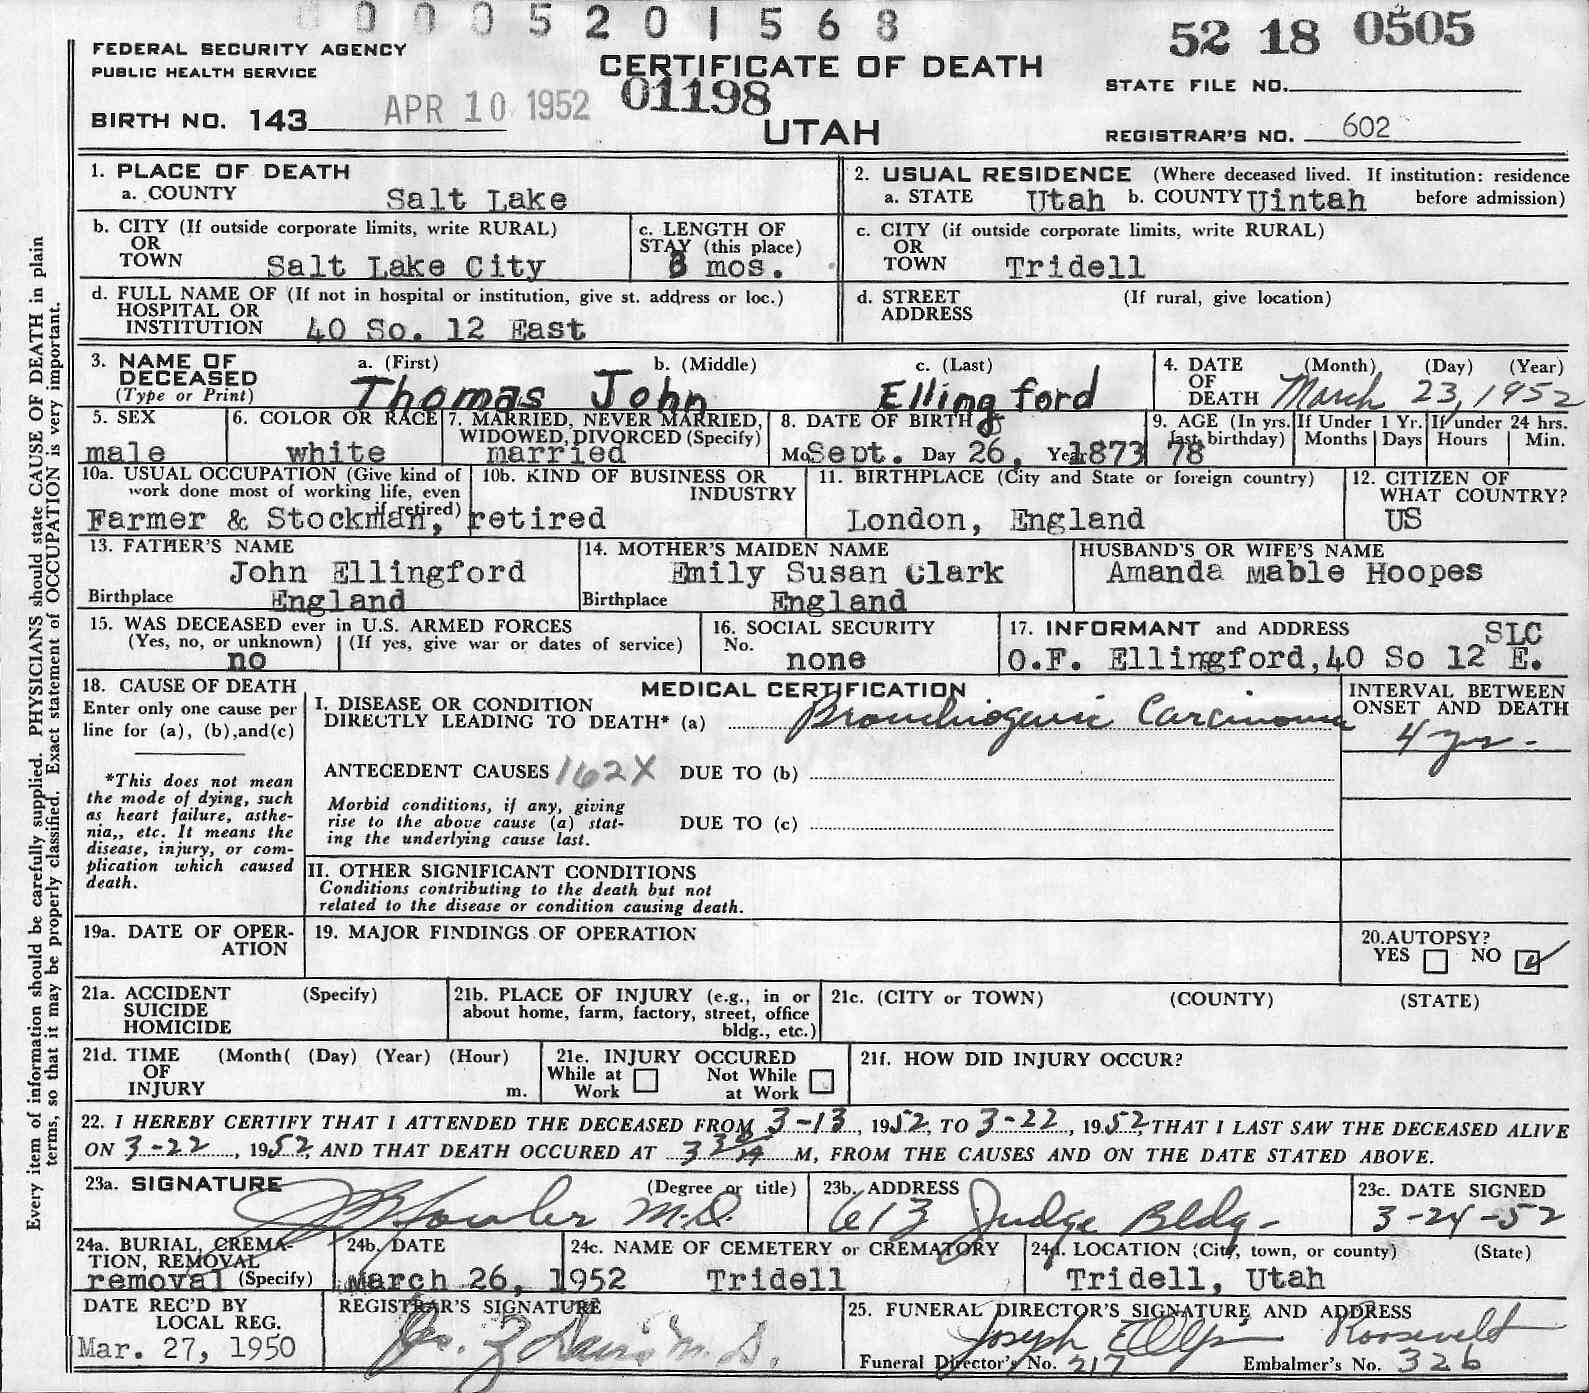 0005201568
52 18 0505
FEDERAL SECURITY AGENCY
PUBLIC HEALTH SERVICE
CERTIFICATE OF DEATH
01198
STATE FILE NO.
BIRTH NO. 143
APR 10 1952
UTAH
REGISTRAR'S NO. 602
1. PLACE OF DEATH
a. COUNTY Salt Lake
2. USUAL RESIDENCE (Where deceased lived. If institution: residence before admission)
a. STATE Utah b. COUNTY Uintah
b. CITY (If outside corporate limits, write RURAL)
OR
TOWN Salt Lake City
c. LENGTH OF
STAY (this place)
mos.
c. CITY (if outside corporate limits, write RURAL)
OR
TOWN Tridell
d. FULL NAME OF (If not in hospital or institution, give st. address or loc.)
HOSPITAL OR
INSTITUTION 40 So. 12 East
d. STREET (If rural, give location)
ADDRESS
3. NAME OF
DECEASED
(Type or Print)
a. (First) b. (Middle) c. (Last)
Thomas John Ellingford
4. DATE (Month) (Day) (Year)
OF
DEATH March 23, 1952
5. SEX
male
6. COLOR OR RACE
white
7. MARRIED, NEVER MARRIED,
WIDOWED, DIVORCED (Specify)
married
8. DATE OF BIRTH
Mo. Sept. Day 26, Year 1873
9. AGE (In yrs. last birthday) 78
If Under 1 Yr. Months Days
If under 24 hrs. Hours Min.
10a. USUAL OCCUPATION (Give kind of
work done most of working life, even
if retired)
Farmer & Stockman, retired
10b. KIND OF BUSINESS OR
INDUSTRY
11. BIRTHPLACE (City and State or foreign country)
London, England
12. CITIZEN OF
WHAT COUNTRY?
US
13. FATHER'S NAME
John Ellingford
Birthplace England
14. MOTHER'S MAIDEN NAME
Emily Susan Clark
Birthplace England
HUSBAND'S OR WIFE'S NAME
Amanda Mable Hoopes
15. WAS DECEASED ever in U.S. ARMED FORCES
(Yes, no, or unknown) (If yes, give war or dates of service)
no
16. SOCIAL SECURITY
No.
none
17. INFORMANT and ADDRESS SLC
O.F. Ellingford, 40 So 12 E.
18. CAUSE OF DEATH
Enter only one cause per
line for (a), (b), and (c)
*This does not mean
the mode of dying, such
as heart failure, asthe-
nia,, etc. It means the
disease, injury, or com-
plication which caused
death.
MEDICAL CERTIFICATION
I. DISEASE OR CONDITION
DIRECTLY LEADING TO DEATH* (a) Bronchiogenic Carcinoma
INTERVAL BETWEEN
ONSET AND DEATH
4 yrs.
ANTECEDENT CAUSES 162X DUE TO (b)
Morbid conditions, if any, giving
rise to the above cause (a) stat-
ing the underlying cause last.
DUE TO (c)
II. OTHER SIGNIFICANT CONDITIONS
Conditions contributing to the death but not
related to the disease or condition causing death.
19a. DATE OF OPER-
ATION
19. MAJOR FINDINGS OF OPERATION
20. AUTOPSY?
YES NO
21a. ACCIDENT (Specify)
SUICIDE
HOMICIDE
21b. PLACE OF INJURY (e.g., in or
about home, farm, factory, street, office
bldg., etc.)
21c. (CITY or TOWN) (COUNTY) (STATE)
21d. TIME (Month( (Day) (Year) (Hour)
OF
INJURY m.
21e. INJURY OCCURED
While at Work Not While at Work
21f. HOW DID INJURY OCCUR?
22. I HEREBY CERTIFY THAT I ATTENDED THE DECEASED FROM 3-13, 1952, TO 3-22, 1952, THAT I LAST SAW THE DECEASED ALIVE
ON 3-22, 1952, AND THAT DEATH OCCURED AT 3 M, FROM THE CAUSES AND ON THE DATE STATED ABOVE.
23a. SIGNATURE (Degree or title)
M.D.
23b. ADDRESS
613 Judge Bldg.
23c. DATE SIGNED
3-24-52
24a. BURIAL, CREMA-
TION, REMOVAL
removal (Specify)
24b. DATE
March 26, 1952
24c. NAME OF CEMETERY or CREMATORY
Tridell
24d. LOCATION (City, town, or county) (State)
Tridell, Utah
DATE REC'D BY
LOCAL REG.
Mar. 27, 1950
REGISTRAR'S SIGNATURE
M.D.
25. FUNERAL DIRECTOR'S SIGNATURE AND ADDRESS
Joseph Roosevelt
Funeral Director's No. 217 Embalmer's No. 326
Every item of information should be carefully supplied. PHYSICIANS should state CAUSE OF DEATH in plain
terms, so that it may be properly classified. Exact statement of OCCUPATION is very important.